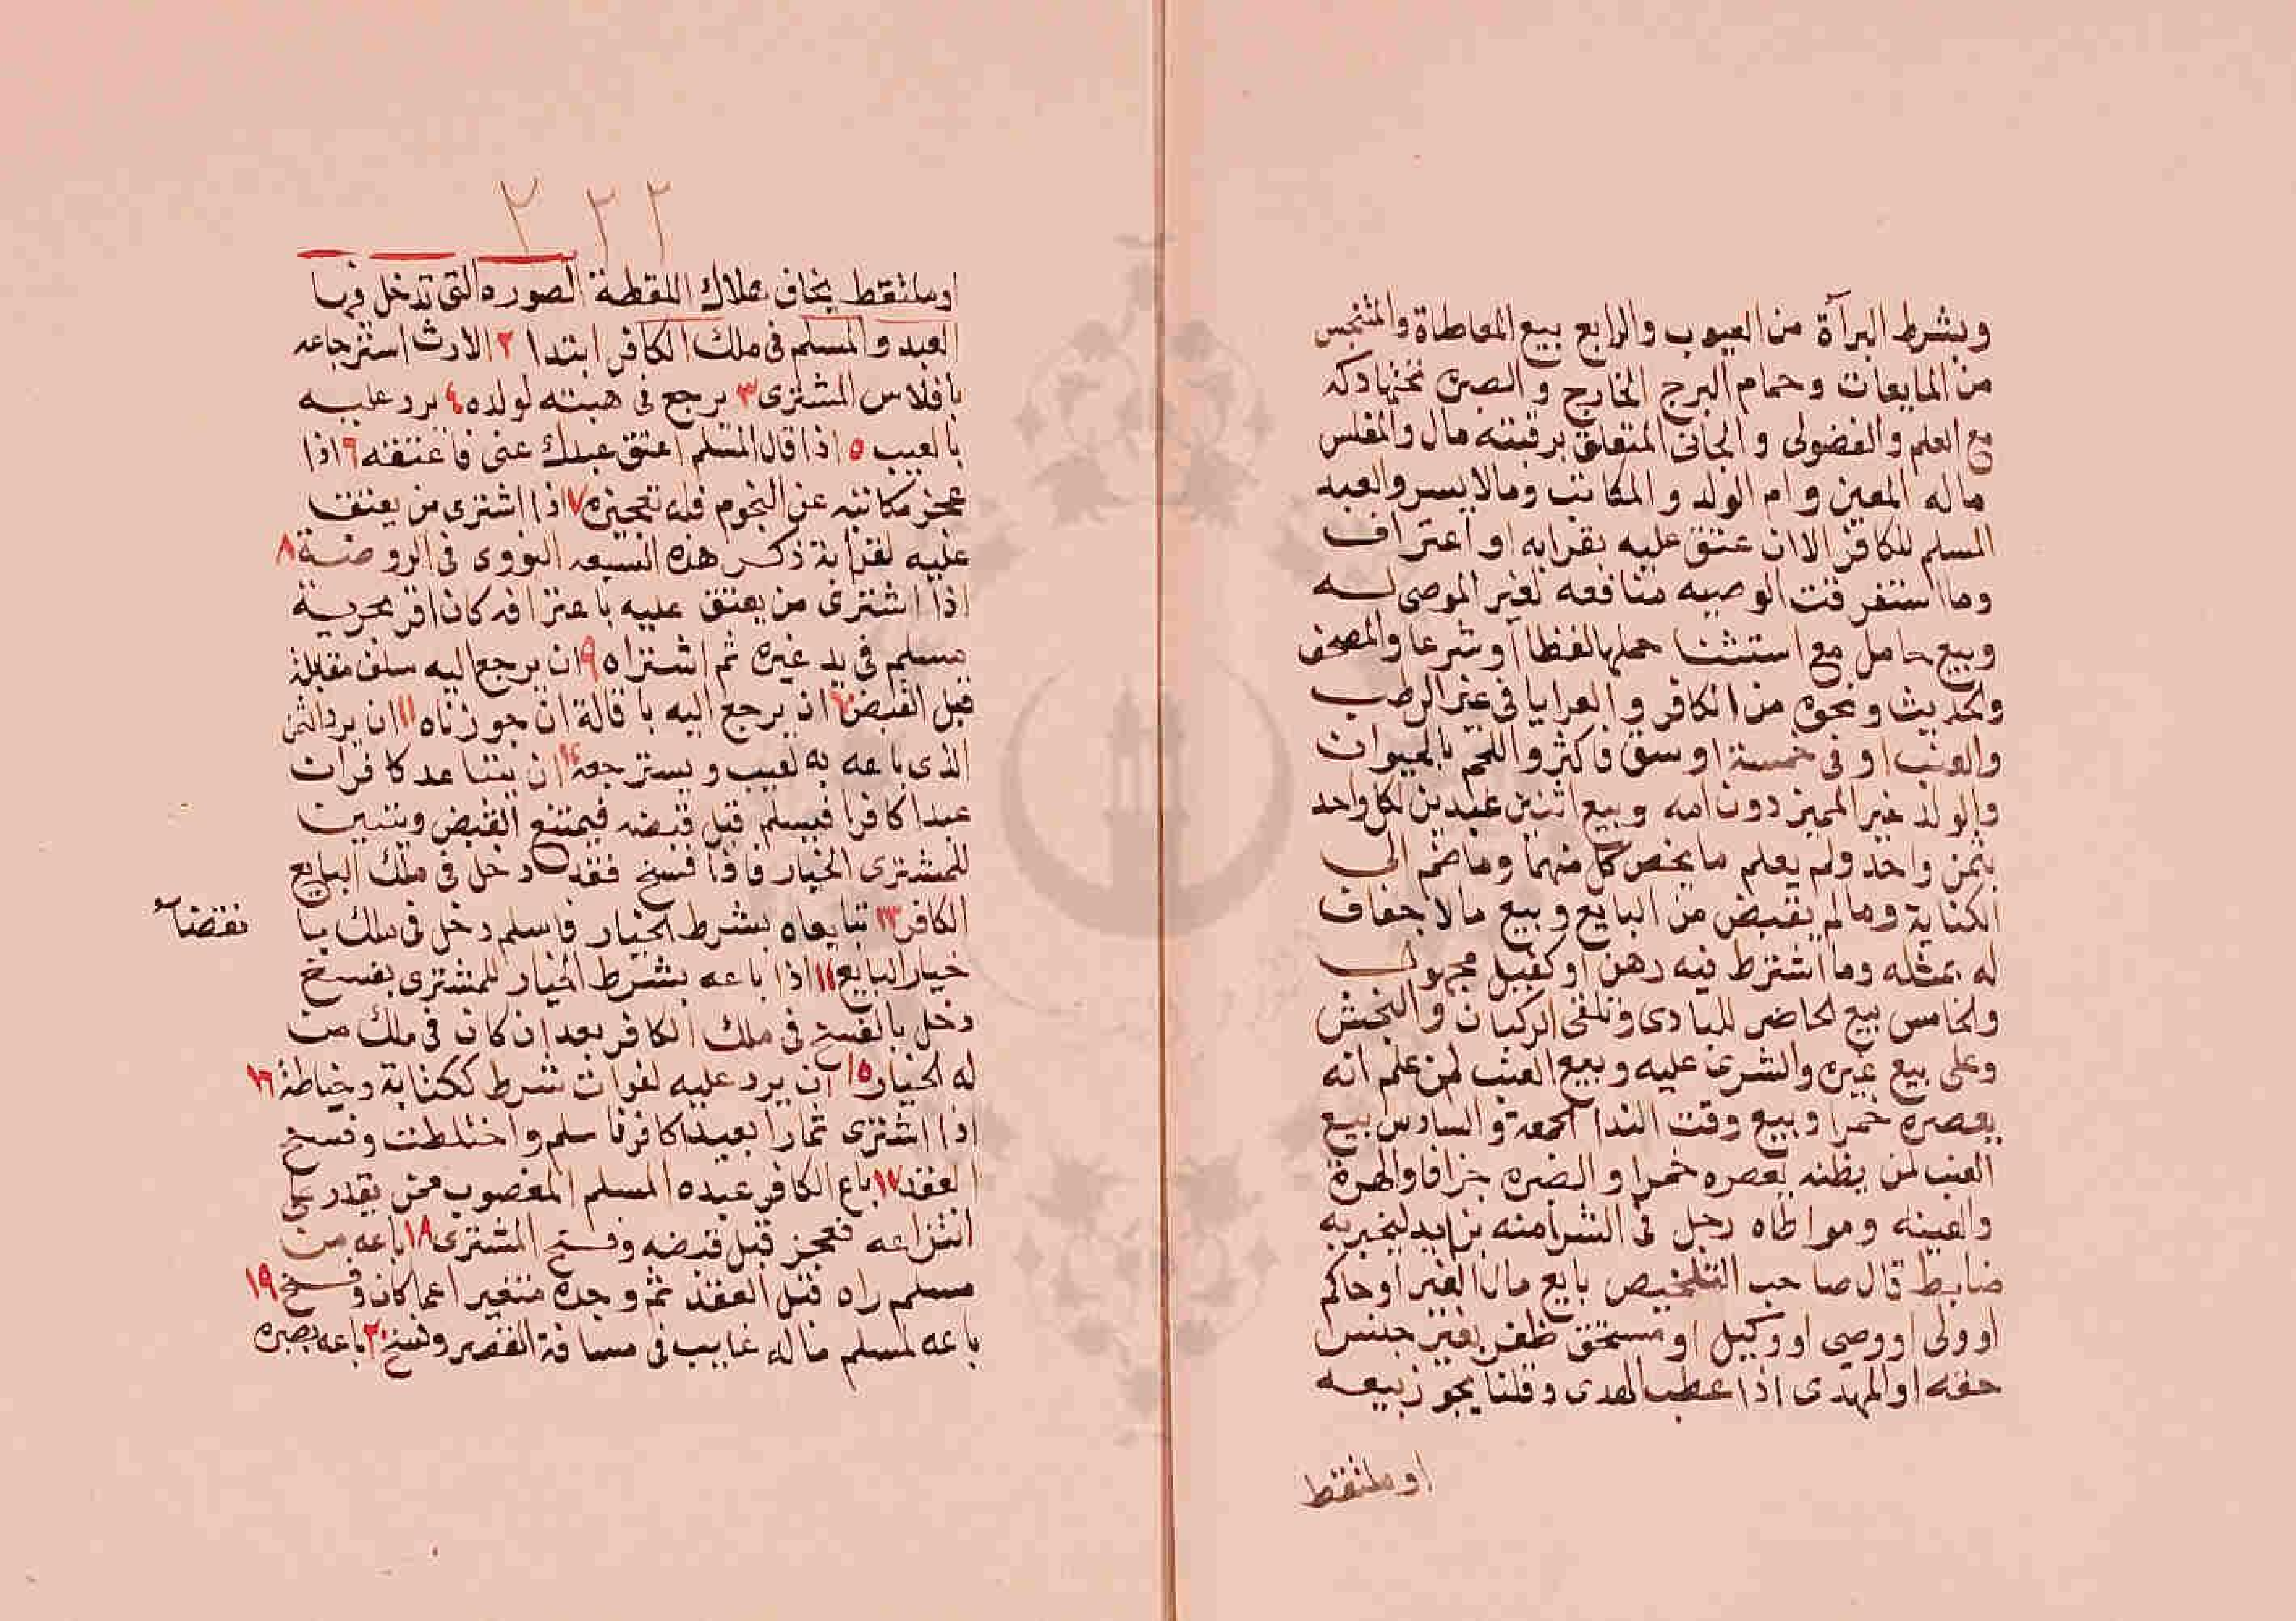 وبشرط البرآة من العيوب والرابع بيع المعاطاة والمتنجس
من المايعات وحمام البرج الخارج والصبرة تحتها دكه
مع العلم والفضولى والجانى المتعلق برقبته مال والمفلس
ماله المعين وام الولد والمكاتب ومالا يسر والعبد
المسلم للكافر الا ان عتق عليه بقرابه او اعتراف
وما استغرقت الوصيه منافعه لغير الموصى له
وبيع حامل مع استثنا حملها لفظا او شرعا والمصحف
والحديث ونحوه من الكافر والعرايا فى غير الرطب
والعنب او فى خمسة اوسق فاكثر واللحم بالحيوان
والولد غير المميز دون امه وبيع اثنين عبدين لكل واحد
بثمن واحد ولم يعلم ما يخص كل منهما وما ضم الى
الكتابة وما لم يقبض من البايع وبيع مالا جفاف
له بمثله وما اشترط فيه رهن او كفيل مجهول
والخامس بيع الحاضر للبادى وتلقى الركبان والنجش
وعلى بيع غيره والشرى عليه وبيع العنب لمن علم انه
يعصره خمرا وبيع وقت الندا الجمعة والسادس بيع
العنب لمن يظنه يعصره خمرا والصبره جزافا والهرة
والعينه ومواطاه رجل فى الشرا منه بزايد ليخبر به
ضابط قال صاحب التلخيص بايع مال الغير او حاكم
او ولى او وصى او وكيل او مستحق ظفر بغير جنس
حقه او المهدى اذا عطب الهدى وقلنا يجوز بيعه
او ملتقط
٢٢٢
او ملتقط يخاف هلاك اللقطة الصوره التى تدخل فيها
العبد والمسلم فى ملك الكافر ابتدا ٢ الارث استرجاعه
بافلاس المشترى ٣ يرجع فى هبته لولده ٤ يرد عليه
بالعيب ٥ اذا قال المسلم اعتق عبدك عنى فاعتقه ٦ اذا
عجز مكاتبه عن النجوم فله تعجيزه ٧ اذا اشترى من يعتق
عليه لقرابة ذكر هذه السبعه النووى فى الروضة ٨
اذا اشترى من يعتق عليه باعترافه كان اقر بحرية
مسلم فى يد غيره ثم اشتراه ٩ ان يرجع اليه سلف مقابله
قبل القبض ١٠ ان يرجع اليه باقالة ان جوزناه ١١ ان يرد الثمن
الذى باعه به لعيب ويسترجعه ١٢ ان يتباعد كافران
عبدا كافرا فيسلم قبل قبضه فيمتنع القبض ويتبين
للمشترى الخيار فاذا فسخ فقد دخل فى ملك البايع
الكافر ١٣ تبايعاه بشرط الخيار فاسلم دخل فى ملك با
نقضا
خيار البايع ١٤ اذا باعه بشرط الخيار للمشترى بفسخ
دخل بالفسخ فى ملك الكافر بعد ان كان فى ملك من
له الخيار ١٥ ان يرد عليه لفوات شرط ككتابة وخياطة ١٦
اذا اشترى ثمارا بعبد كافر فاسلم واختلطت وفسخ
العقد ١٧ باع الكافر عبده المسلم المغصوب ممن يقدر على
انتزاعه فعجز قبل قبضه وفسخ المشترى ١٨ باعه من
مسلم راه قبل العقد ثم وجده متغيرا عما كان وفسخ ١٩
باعه لمسلم ماله غايب فى مسافة القصر وفسخ ٢٠ باعه بصبره